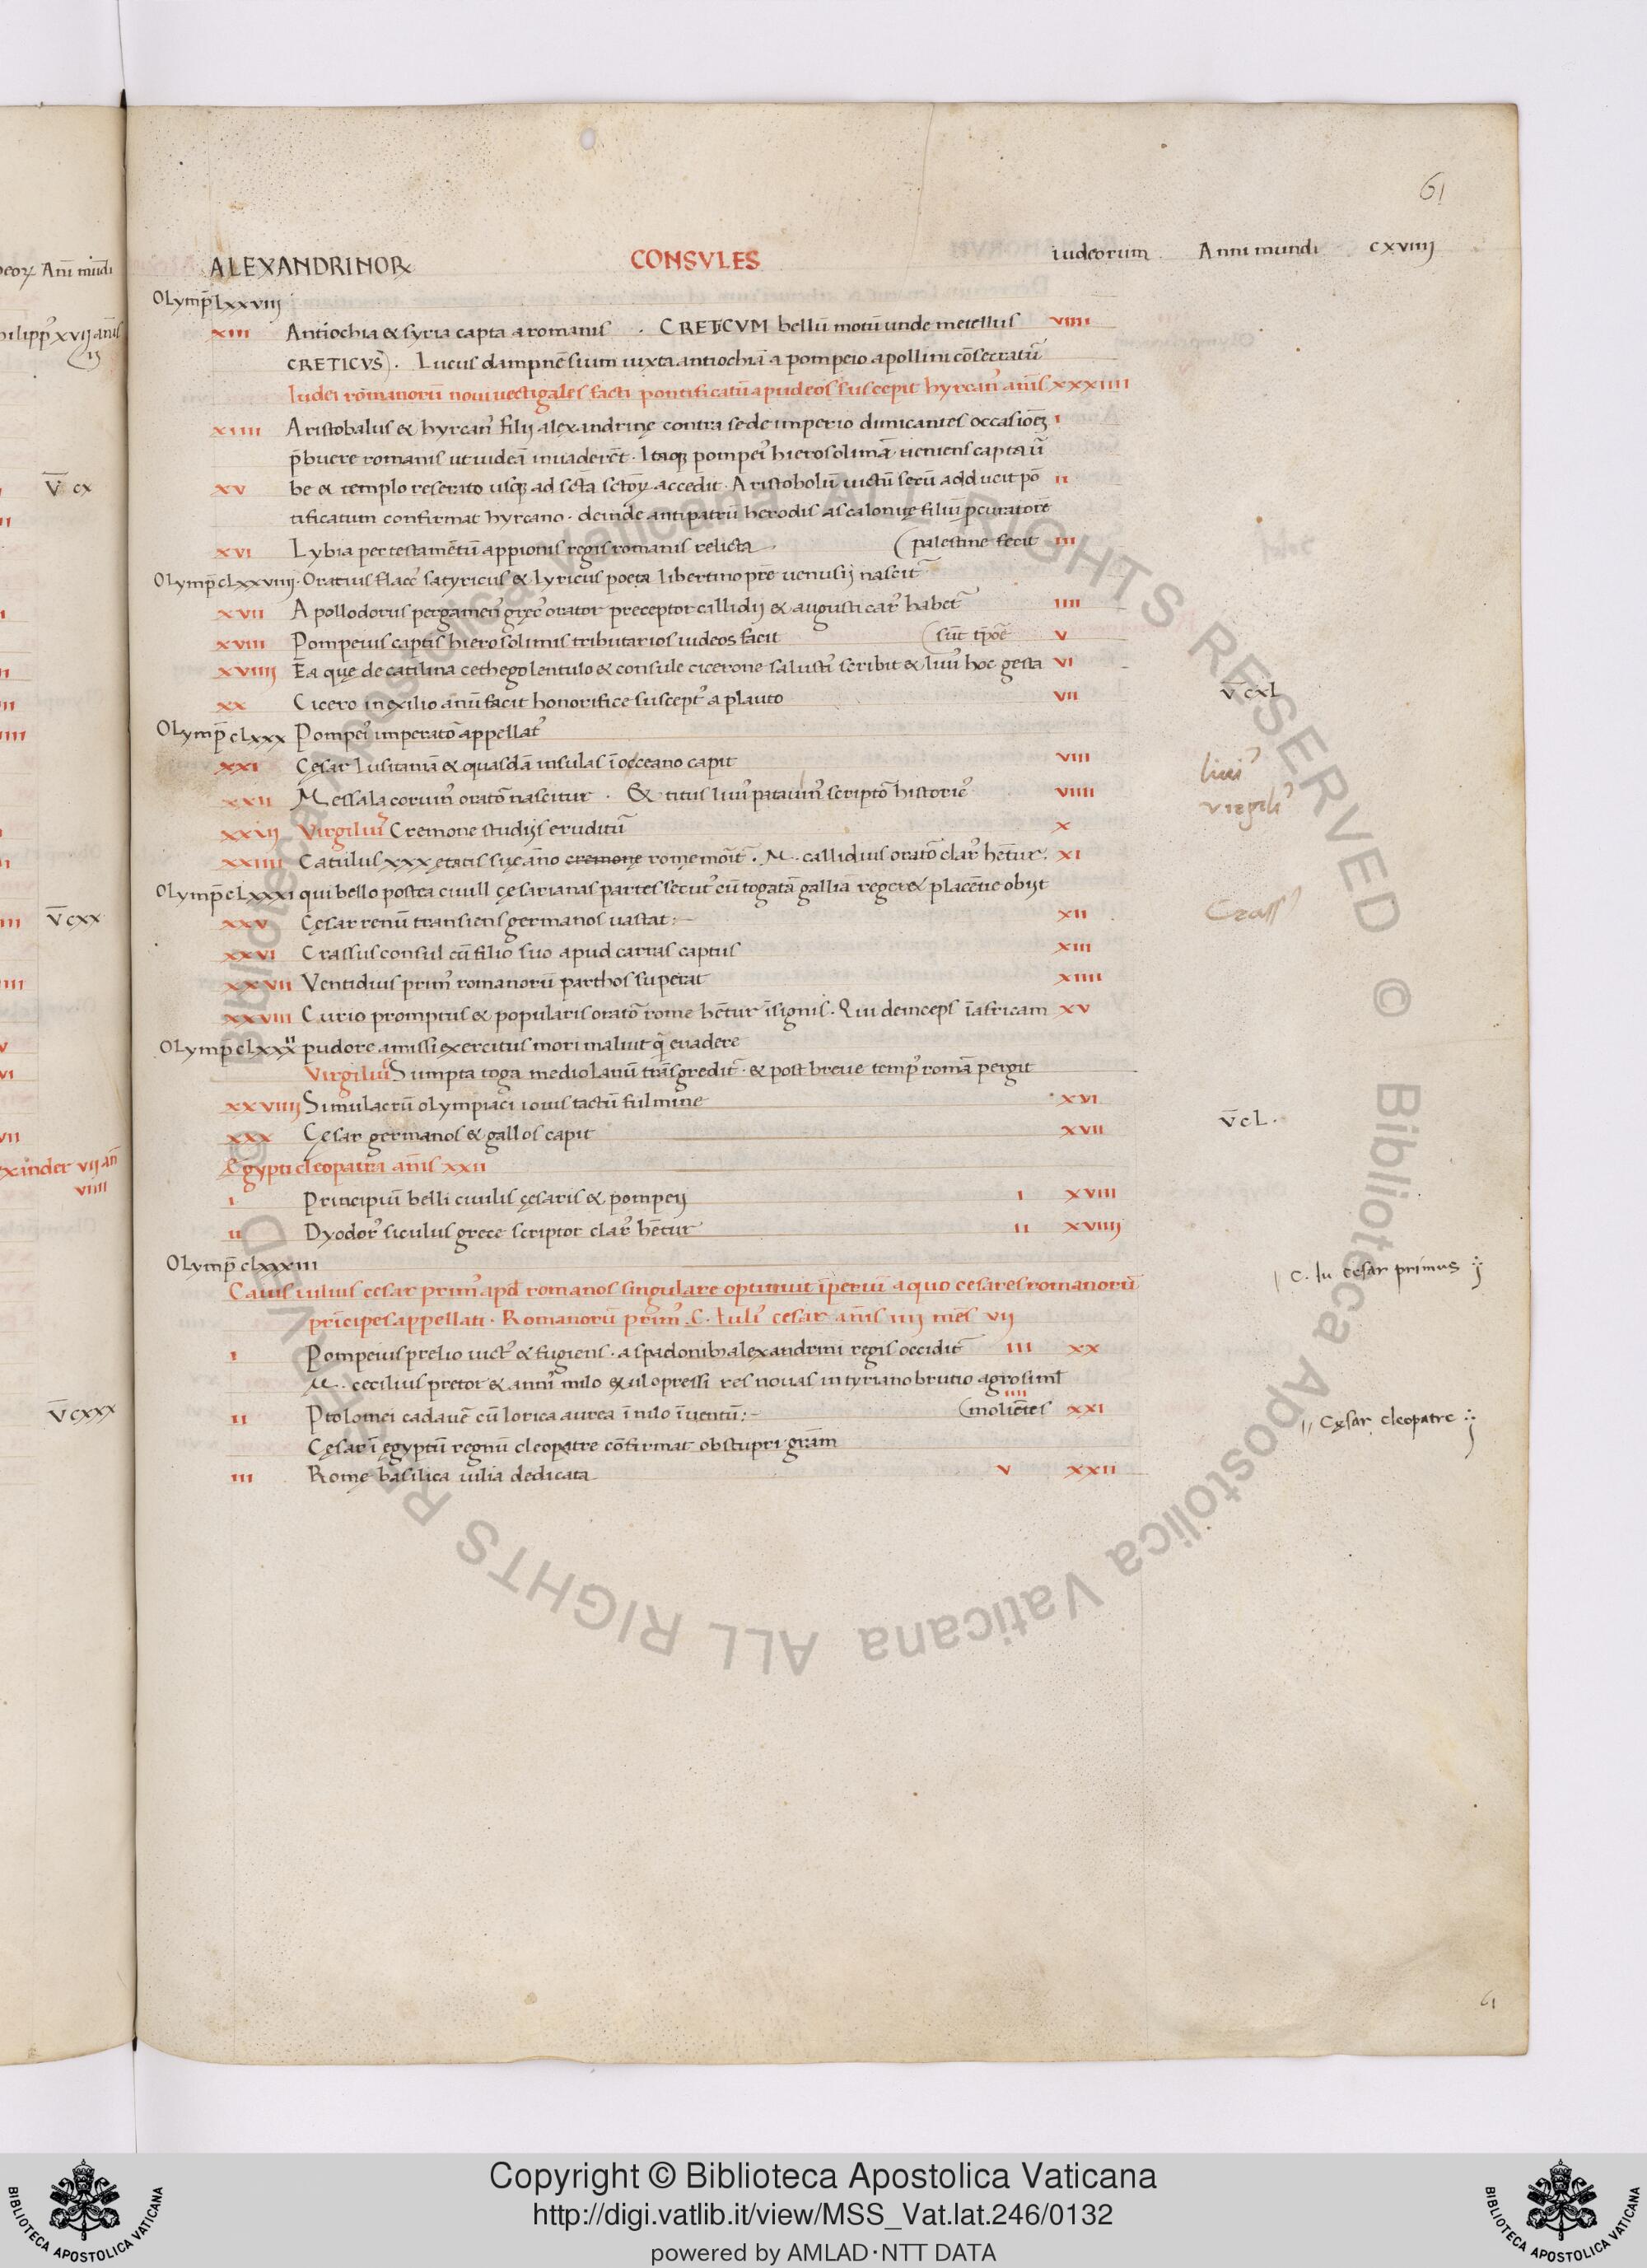 61
ALEXANDRINOꝜ CONSVLES iudeorum Anni mundi cxviiij
Olymp̄ lxxviiij
xiii Antiochia & syria capta a romanis . CRETICVM bellū motū unde metellus viiii
CRETICVS . Lucus dampnēsium iuxta antiochiā a pompeio apollini cōsecratū
Iudei romanorū novi vectigales facti pontificatū apud eos suscepit hyrcan᾽ anīs xxxiiii
xiiii Aristobalus & hyrcan᾽ filij alexandrinę contra se de imperio dimicantes occasiōeꝫ i
p̄buere romanis ut iudeā invaderēt . Itaqꝫ pompei᾽ hierosolimā veniens capta ū
xv be & templo reserato usqꝫ ad scīa sctoꝝ accedit . Aristobolū victū secū adducit pō ii
tificatum confirmat hyrcano . deinde antipatrū herodis ascalonitę filiū p̄curatorē
xvi Lybia per testamētū appionis regis romanis relicta . (palestine fecit iii
Olymp̄ clxxviiij . Oratius flacc᾽ satyricus & lyricus poeta libertino pr̄e venusij nascit᷑
xvii Apollodorus pergamen᾽ gręc᾽ orator preceptor callidij & augusti car᾽ habet᷑ iiii
xviii Pompeius captis hierosolimis tributarios iudeos facit (sūt tp̄oē v
xviiij Ea quę de catilina cethego lentulo & consule cicerone salusti᾽ scribit & liui᾽ hoc gesta vi
v̄cxl
xx Cicero in exilio anū facit honorifice suscept᾽ a plauto vii
Olymp̄ clxxx Pompei᾽ imperato᷑ appellat᾽
xxi Cęsar lusitaniā & quasdā insulas ī occeano capit viii
livi᾽
xxii Messala corvin᾽ orato᷑ nascitur . Et titus livi᾽ patavin᾽ scripto᷑ historic᾽ viiii
virgili᾽
xxiij Virgilius Cremone studijs eruditū x
xxiiii Catulus xxx ętatis suę āno cremone romę moīt᷑ . M . callidius orato᷑ clar᾽ hētur . xi
Olymp̄ clxxxi qui bello postea civili cęsarianas partes secut᾽ cū togatā galliā reger& placētie obijt
Crass᾽
xxv Cęsar renū transiens germanos vastat :– xii
xxvi Crassus consul cū filio suo apud carras captus xiii
xxvii Ventidius prim᾽ romanorū parthos superat xiiii
xxviii Curio promptus & popularis orato᷑ rome hētur īsignis . Qui deinceps ī africam xv
Olymp̄ clxxxii pudore amissi exercitus mori maluit q̄ evadere
Virgilius Sumpta toga mediolanū trāsgredit᷑ . & post breve temp᾽ romā pergit
xxviiij Simulacrū olympiaci iovis tactū fulmine xvi
xxx Cęsar germanos & gallos capit xvii
v̄cl .
Ęgypti cleopatra anīs xxii
i Principiū belli civilis cęsaris & pompeij i xviii
ii Dyodor᾽ siculus grece scriptor clar᾽ hētur ii xviiij
Olymp̄ clxxxiii
Caius iulius cesar prim᾽ apd romanos singulare optinuit īperiū a quo cesares romanorū
c . Iu cesar primus
prīcipes appellati . Romanorū prim᾽ . C . Iuli᾽ cesar anīs iiij mēs vij
i Pompeius prelio vict᾽ & fugiens . a spadonibꝫ alexandrini regis occidit᷑ iii xx
M . cecilius pretor & anni᾽ milo exul opressi res novas in tyriano brutio agro siml
ii Ptolomei cadavē cū lorica aurea ī nilo īventū :– (moliētes iiii xxi
Cęsar cleopatre
Cęsar ī ęgyptū regnū cleopatre cōfirmat ob stupri grām
iii Rome basilica iulia dedicata v xxii
v̄ cx
v̄cxx
v̄cxxx
Copyright © Biblioteca Apostolica Vaticana
http://digi.vatlib.it/view/MSS_Vat.lat.246/0132
powered by AMLAD·NTT DATA
BIBLIOTECA APOSTOLICA VATICANA
BIBLIOTECA APOSTOLICA VATICANA